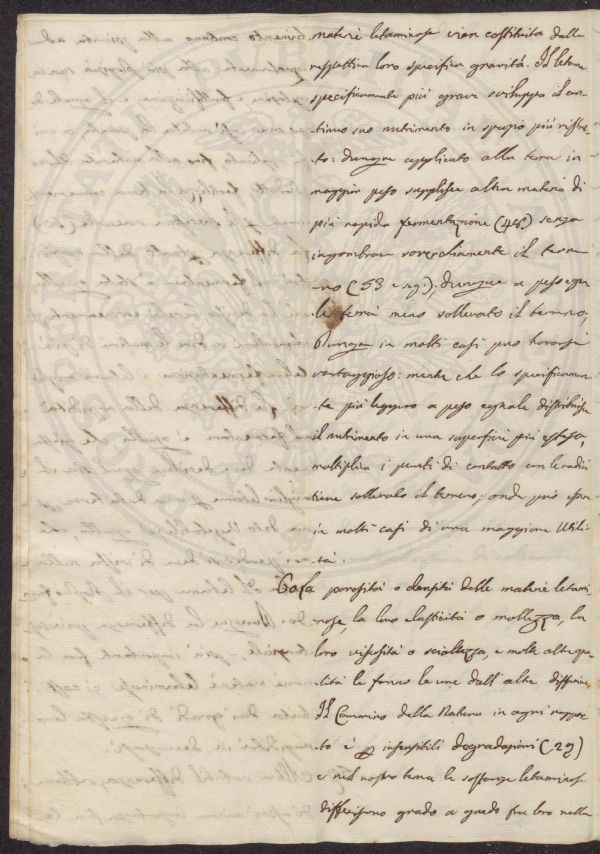 materie letaminose vien costituita dalla
rispettiva loro specifica gravità. Il letame
specificamente più grave sviluppa il con-
tinuo suo nutrimento in spazio più ristret-
to: dunque applicato alla terra in
maggior peso supplisce altra materia di
più rapida fermentazione (48) senza
ingombrare soverchiamente il terre-
no (53 e seg.); dunque a peso egua-
le terrà meno sollevato il terreno;
Dunque in molti casi può trovarsi
vantaggioso: mentre che lo specificamen-
te più leggero a peso eguale distribuisce
il nutrimento in una superficie più estesa,
moltiplica i punti di contatto con le radici
tiene sollevato il terreno; onde può esser
in molti casi di una maggiore Utili-
tà.
60 La porosità o densità delle materie letami-
nose, la loro elasticità o mollezza, la
loro vischiosità o scioltezza, e molte altre qua-
lità le fanno le une dall'altre differire
Il Cammino della Natura in ogni rappor-
to è per insensibili degradazioni (29)
e nel nostro tema le sostanze letaminose
differiscono grado a grado fra loro nella